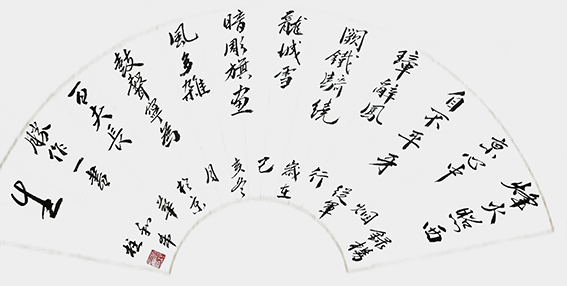 烽火照西
京心中
自不平牙
璋辭鳳
闕鐵騎繞
龍城雪
暗彫旗畫
風多雜
鼓聲寧為
百夫長
勝作一書
生
錄楊
烱
從軍
行
歲在
己
亥冬
月
於京
華